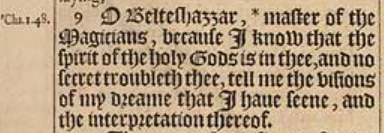 *Cha.1.48.
9 O Belteſhazzar, * maſter of the
Magicians, becauſe I know that the
ſpirit of the holy Gods is in thee, and no
ſecret troubleth thee, tell me the viſions
of my dreame that I haue ſeene, and
the interpretation thereof.